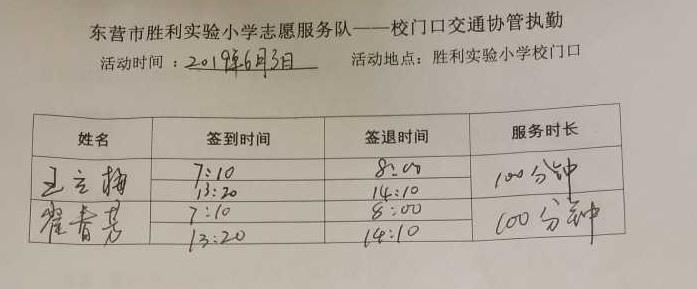 东营市胜利实验小学志愿服务队——校门口交通协管执勤
活动时间：2019年6月3日 活动地点：胜利实验小学校门口
姓名 签到时间 签退时间 服务时长
王立梅 7:10 8:00 100分钟
13:20 14:10
翟春 7:10 8:00 100分钟
13:20 14:10